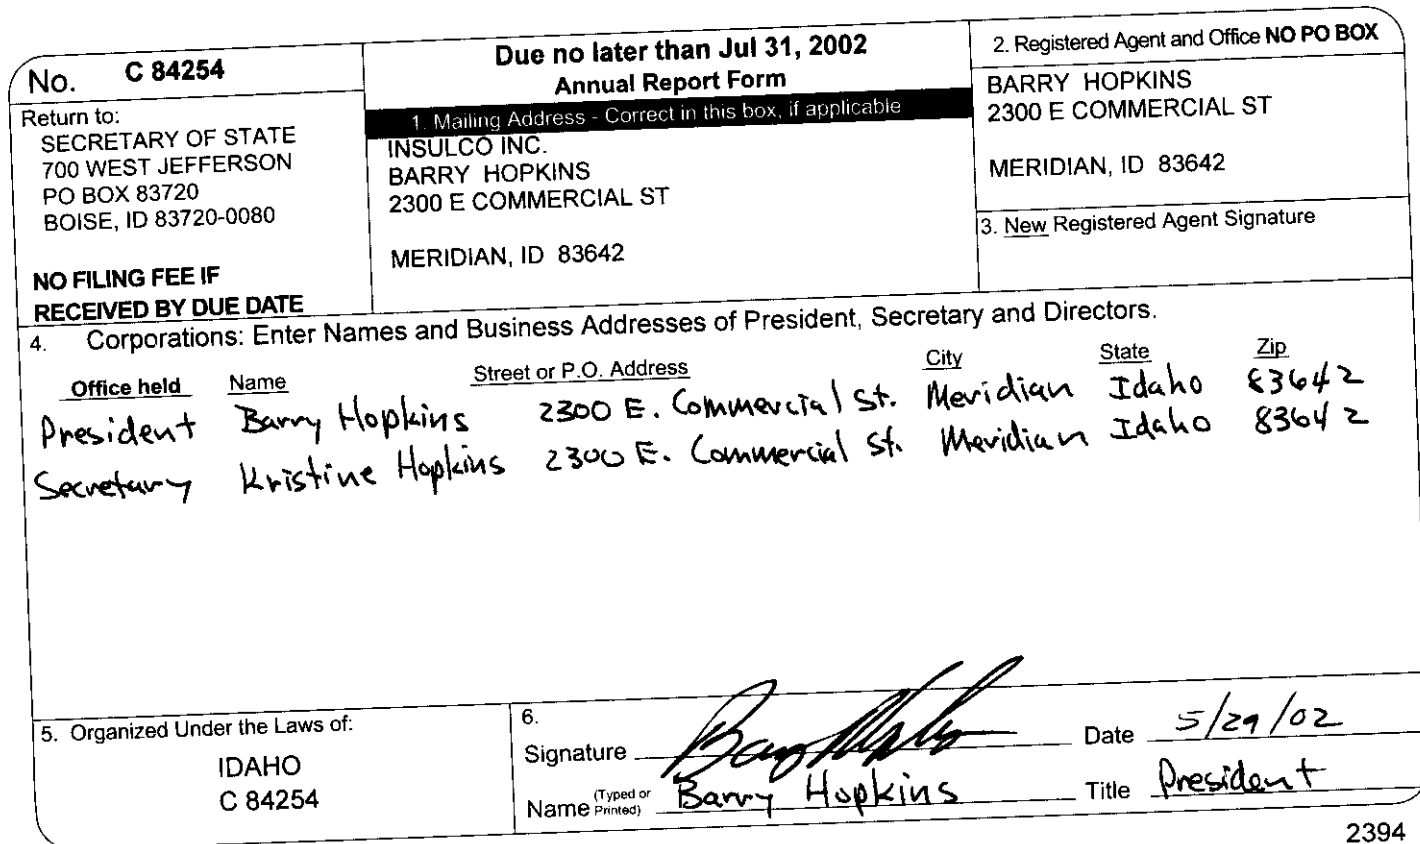 No. C 84254
Return to:
SECRETARY OF STATE
700 WEST JEFFERSON
PO BOX 83720
BOISE, ID 83720-0080
NO FILING FEE IF
RECEIVED BY DUE DATE
Due no later than Jul 31, 2002
Annual Report Form
1. Mailing Address - Correct in this box, if applicable
INSULCO INC.
BARRY HOPKINS
2300 E COMMERCIAL ST
MERIDIAN, ID 83642
2. Registered Agent and Office NO PO BOX
BARRY HOPKINS
2300 E COMMERCIAL ST
MERIDIAN, ID 83642
3. New Registered Agent Signature
4. Corporations: Enter Names and Business Addresses of President, Secretary and Directors.
Office held Name Street or P.O. Address City State Zip
President Barry Hopkins 2300 E. Commercial St. Meridian Idaho 83642
Secretary Kristine Hopkins 2300 E. Commercial St. Meridian Idaho 83642
5. Organized Under the Laws of:
IDAHO
C 84254
6.
Signature Barry Hopkins Date 5/29/02
Name (Typed or Printed) Barry Hopkins Title President
2394